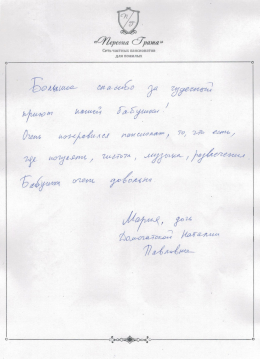 «Персона Грата»
сеть частных пансионатов
для пожилых
Большое спасибо за чудесный
приют нашей бабушки!
Очень понравился пансионат, то, что есть,
где погулять, чистота, музыка, развлечения
Бабушка очень довольна
Мария, дочь
Наталии
Павловны